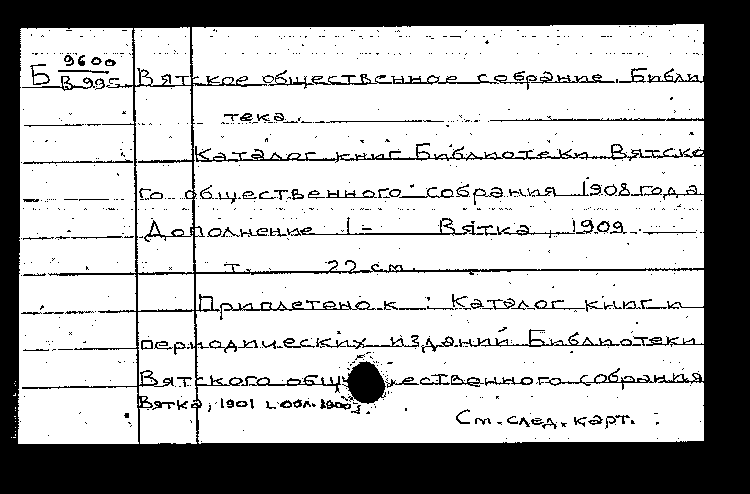 Б 9600
В 995
Вятское общественное собрание. Библи
тека.
Каталог книг Библиотеки Вятско
го общественного собрания 1908 года
Дополнение 1- Вятка, 1909
т. 22 см.
Приплетено к : Каталог книг и
периодических изданий Библиотеки
Вятского общ ественного собрания
Вятка, 1901
См. след. карт.